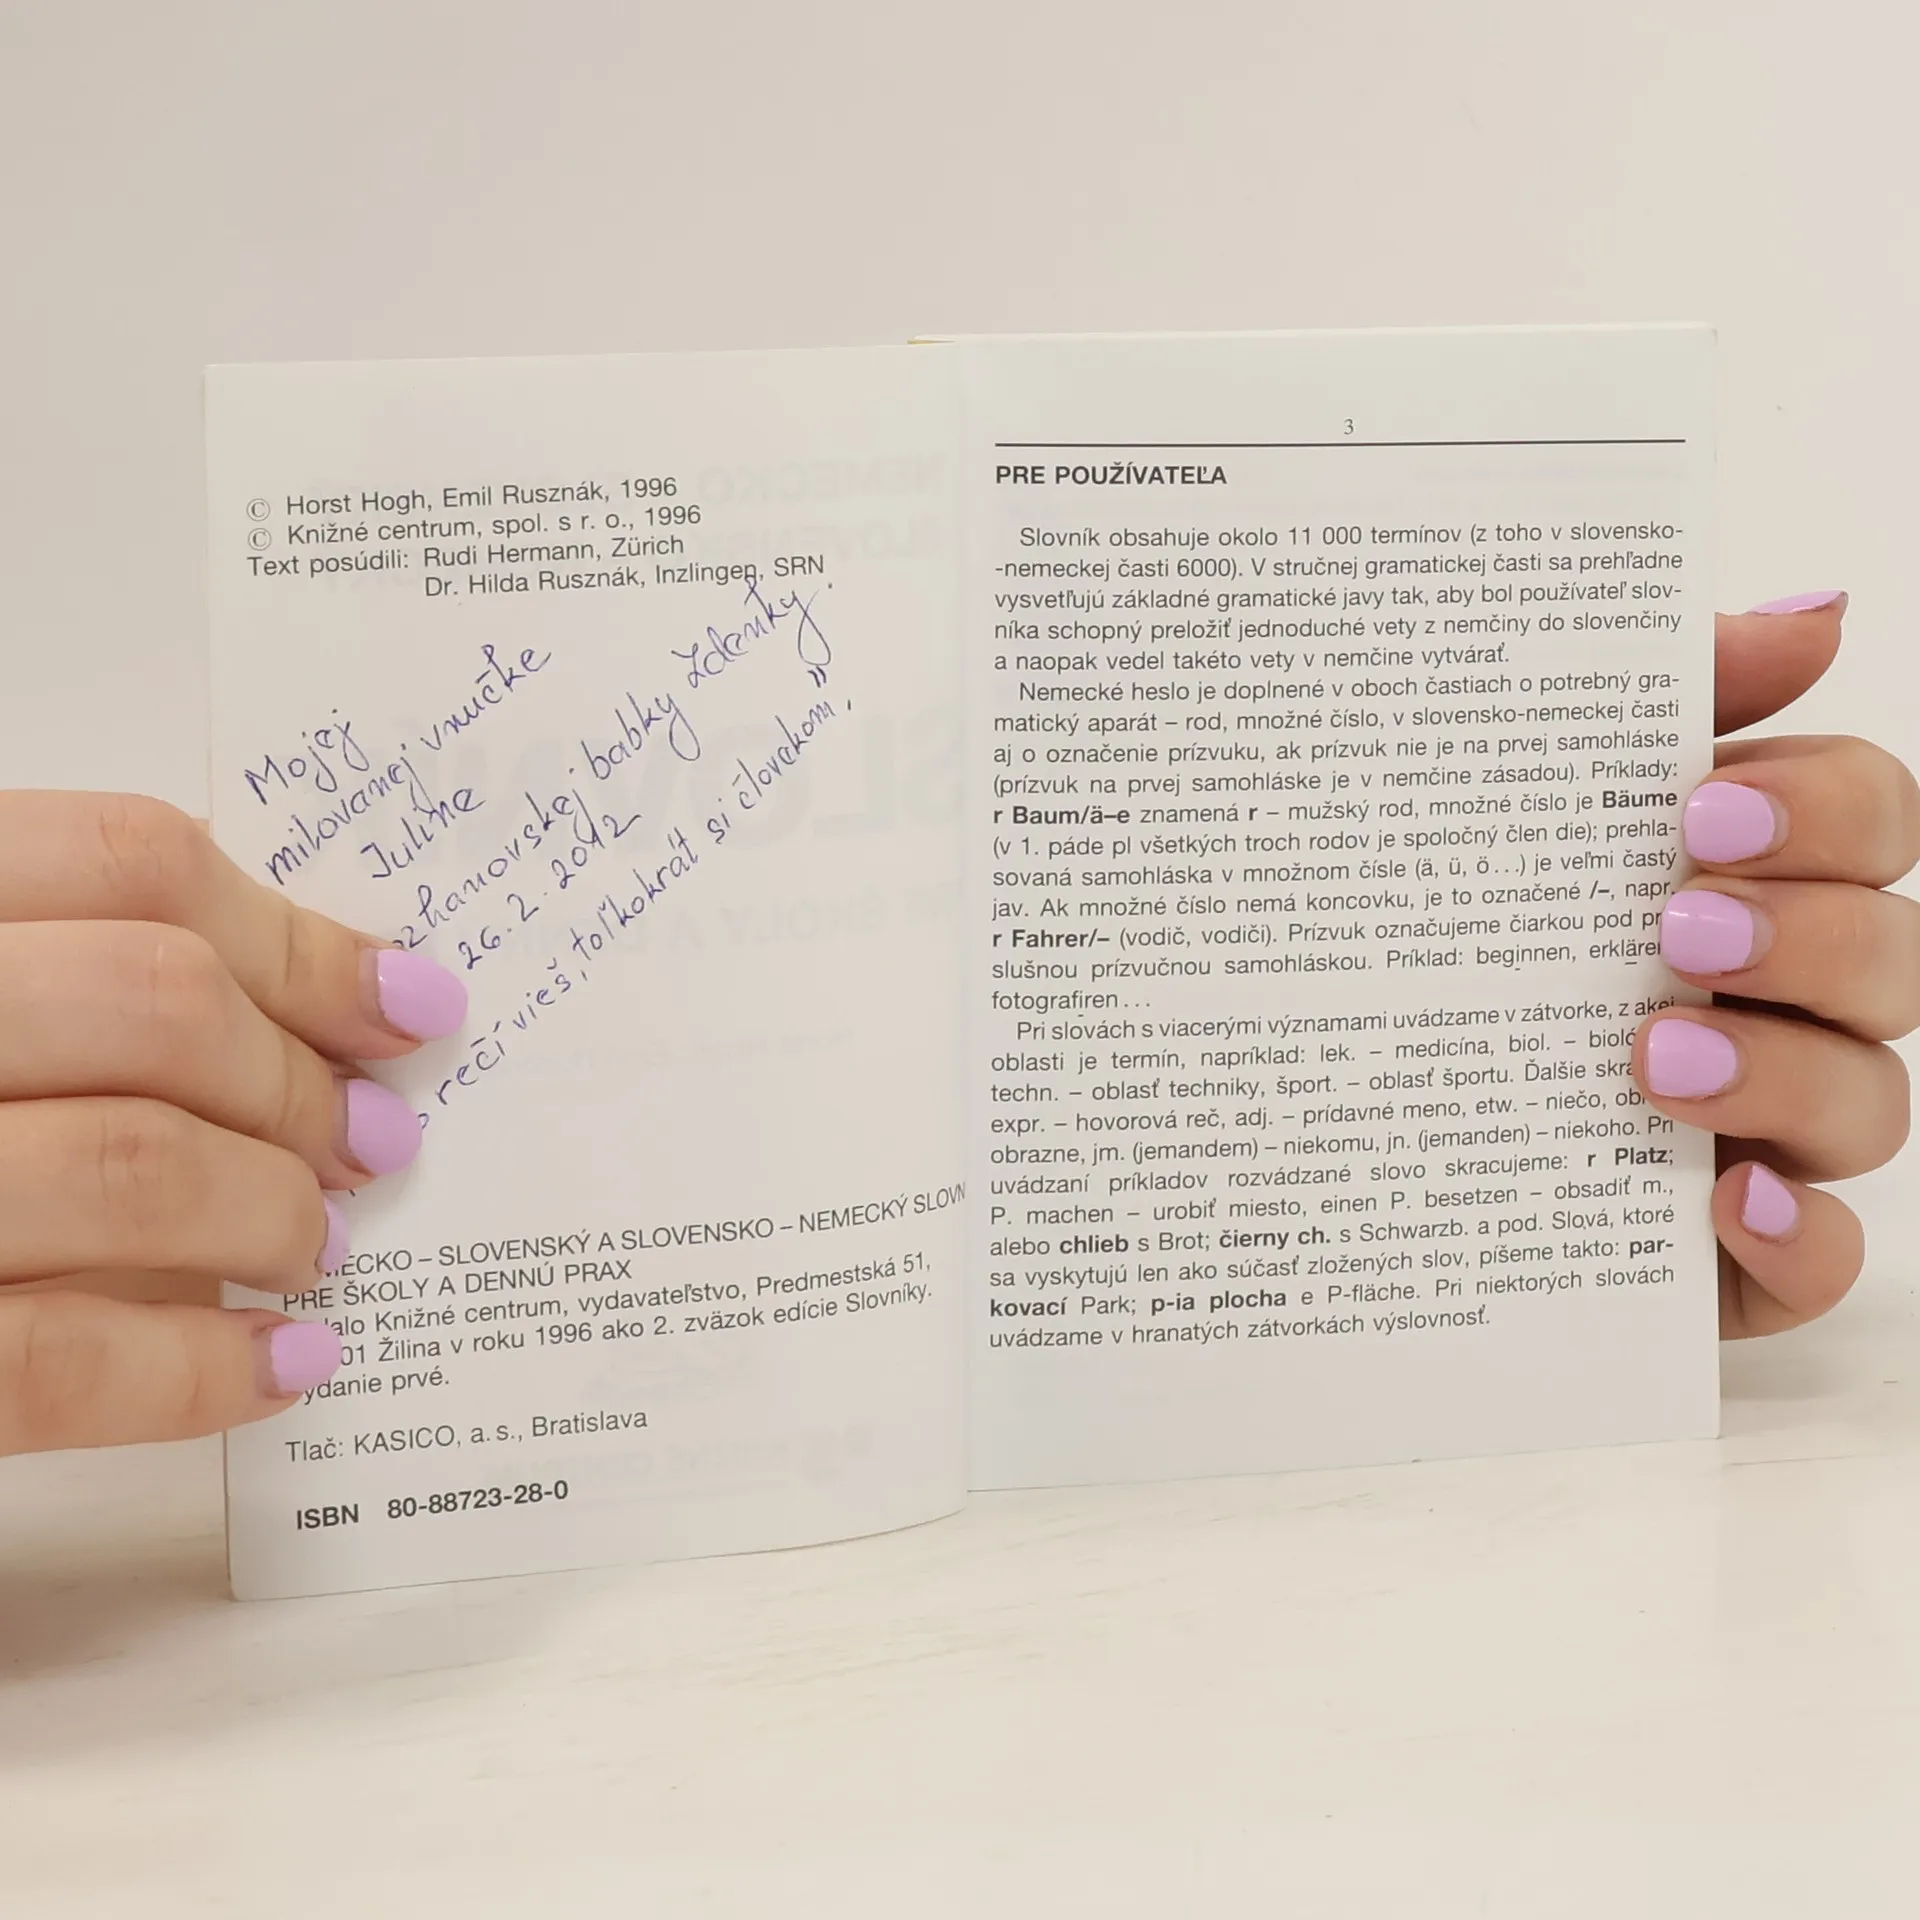 © Horst Hogh, Emil Rusznák, 1996
© Knižné centrum, spol. s r. o., 1996
Text posúdili: Rudi Hermann, Zürich
Dr. Hilda Rusznák, Inzlingen, SRN
Mojej
milovanej vnučke
Juline
babky Zdenky.
26.2.2012
rečí vieš, toľkokrát si človekom".
ECKO – SLOVENSKÝ A SLOVENSKO – NEMECKÝ SLOVN
PRE ŠKOLY A DENNÚ PRAX
alo Knižné centrum, vydavateľstvo, Predmestská 51,
01 Žilina v roku 1996 ako 2. zväzok edície Slovníky.
ydanie prvé.
Tlač: KASICO, a. s., Bratislava
ISBN 80-88723-28-0
3
PRE POUŽÍVATEĽA
Slovník obsahuje okolo 11 000 termínov (z toho v slovensko-
-nemeckej časti 6000). V stručnej gramatickej časti sa prehľadne
vysvetľujú základné gramatické javy tak, aby bol používateľ slov-
níka schopný preložiť jednoduché vety z nemčiny do slovenčiny
a naopak vedel takéto vety v nemčine vytvárať.
Nemecké heslo je doplnené v oboch častiach o potrebný gra-
matický aparát – rod, množné číslo, v slovensko-nemeckej časti
aj o označenie prízvuku, ak prízvuk nie je na prvej samohláske
(prízvuk na prvej samohláske je v nemčine zásadou). Príklady:
r Baum/ä–e znamená r – mužský rod, množné číslo je Bäume
(v 1. páde pl všetkých troch rodov je spoločný člen die); prehla-
sovaná samohláska v množnom čísle (ä, ü, ö...) je veľmi častý
jav. Ak množné číslo nemá koncovku, je to označené /–, napr.
r Fahrer/– (vodič, vodiči). Prízvuk označujeme čiarkou pod pr
slušnou prízvučnou samohláskou. Príklad: beginnen, erkläre
fotografiren...
Pri slovách s viacerými významami uvádzame v zátvorke, z akej
oblasti je termín, napríklad: lek. – medicína, biol. – bioló
techn. – oblasť techniky, šport. – oblasť športu. Ďalšie skra
expr. – hovorová reč, adj. – prídavné meno, etw. – niečo, ob
obrazne, jm. (jemandem) – niekomu, jn. (jemanden) – niekoho. Pri
uvádzaní príkladov rozvádzané slovo skracujeme: r Platz;
P. machen – urobiť miesto, einen P. besetzen – obsadiť m.,
alebo chlieb s Brot; čierny ch. s Schwarzb. a pod. Slová, ktoré
sa vyskytujú len ako súčasť zložených slov, píšeme takto: par-
kovací Park; p-ia plocha e P-fläche. Pri niektorých slovách
uvádzame v hranatých zátvorkách výslovnosť.